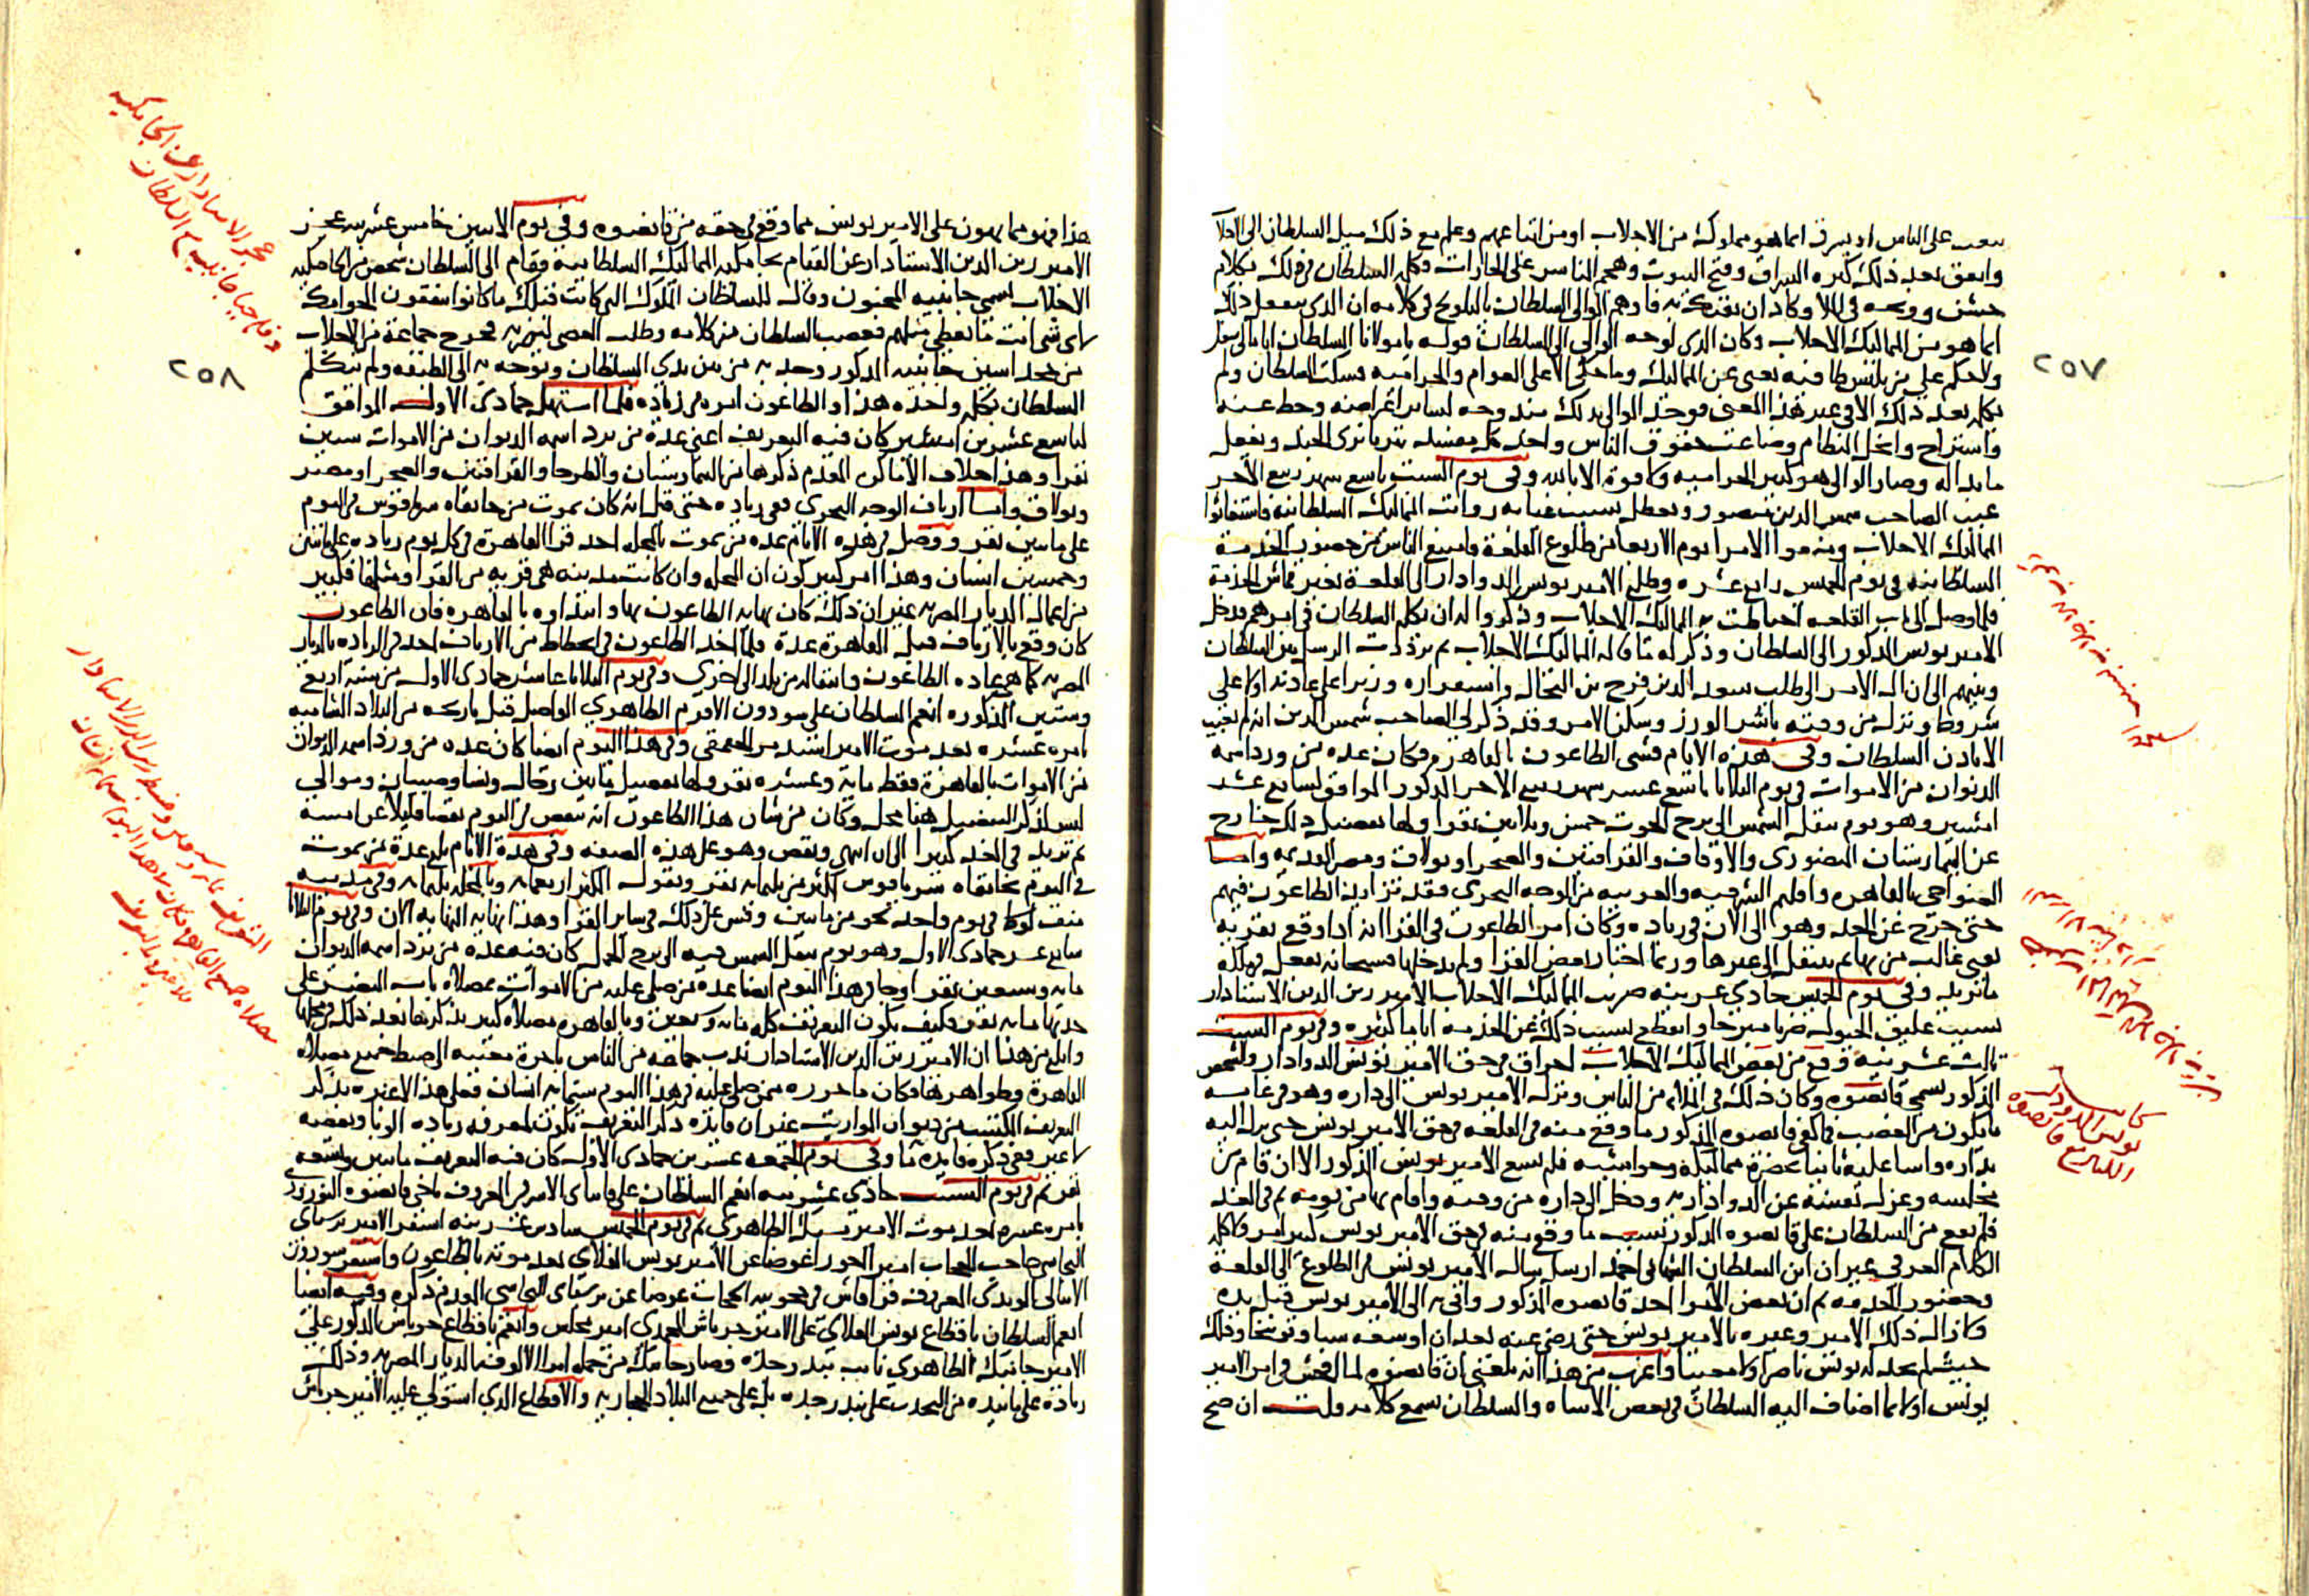 يتعب على الناس او يسرق انما هو مملوك من الاجلاب او من اتباعهم وعلم مع ذلك ميل السلطان الى الاجلاب
واتفق بعد ذلك كثره السراق وفتح البيوت وهجم المناسر على الحارات وكلم السلطان في ذلك بكلام
خشن ووبخه في الملا وكاد ان يفتك به فاوهم الوالي السلطان بالتلويح في كلامه ان الذي يفعل ذلك
انما هو من المماليك الاجلاب وكان الذي لوحه الوالي الى السلطان قوله يا مولانا السلطان انا مالي شغل
ولا حكم على من يلبس طاقيه يعني عن المماليك وما حكمي الا على العوام والحراميه فسكت السلطان ولم
يكلمه بعد ذلك الا في غير هذا المعنى فوجد الوالي بذلك مندوحه لساير اغراضه وحط عنه
واستراح وانحل النظام وضاعت حقوق الناس واخذ كل مفسد يتزيا بزي الجند ويفعل
ما بدا له وصار الوالي هو كبير الحراميه ولا قوة الا بالله وفي يوم السبت تاسع شهر ربيع الآخر
غيب الصاحب شمس الدين منصور وتعطل بسبب غيابه رواتب المماليك السلطانيه فاستغاثوا
المماليك الاجلاب ومنعوا الامرا يوم الاربعا من طلوع القلعة وامتنع الناس من حضور الخدمة
السلطانيه في يوم الخميس رابع عشره وطلع الامير يونس الدوادار الى القلعة بغير قماش الخدمة
فلما وصل الى باب القلعه احتاطت به المماليك الاجلاب وذكروا له ان يكلم السلطان في امرهم فدخل
الامير يونس المذكور الى السلطان وذكر له ما قاله المماليك الاجلاب ثم ترددت الرسل بين السلطان
وبينهم الى ان آل الامر الى طلب سعد الدين فرج بن النحال واستقراره وزيرا على عادته اولا على
شروط ونزل من وقته باشر الوزر وسكن الامر وقد ذكر لي الصاحب شمس الدين انه لم يغيب
الا باذن السلطان وفي هذه الايام فشى الطاعون بالقاهره وكان عده من ورد اسمه
الديوان من الاموات في يوم الثلاثا تاسع عشر شهر ربيع الاخر المذكور الموافق لسابع عشر
امشير وهو يوم تنقل الشمس الى برج الحوت خمس وثلاثين نفرا ولها تفصيل ذلك خارج
عن البيمارستان المنصوري والاوقاف والقرافتين والصحرا وبولاق ومصر القديمه واما
الضواحي بالقاهره واقليم الشرقيه والغربيه من الوجه البحري فقد تزايد الطاعون فيهم
حتى خرج عن الحد وهو الى الآن في زياده وكان امر الطاعون في القرا انه اذا وقع بقريه
يفني غالب من بها ثم ينتقل الى غيرها وربما اختار بعض القرا ولم يدخلها فسبحانه يفعل في ملكه
ما يريد وفي يوم الخميس حادي عشرينه ضرب المماليك الاجلاب الامير زين الدين الاستادار
بسبب عليق الخيول ضربا مبرحا وانقطع بسبب ذلك عن الخدمه اياما كثيره وفي يوم السبت
ثالث عشرينه وقع من بعض المماليك الاجلاب اخراق في حق الامير يونس الدوادار والشخص
المذكور يسمى قانصوه وكان ذلك في الملا من الناس ونزل الامير يونس الى داره وهو في غايه
ما يكون من الغضب فما كفى قانصوه المذكور ما وقع منه في القلعه في حق الامير يونس حتى نزل اليه
بداره واسا عليه ثانيا بحضرة مماليكه وحواشيه فلم يسع الامير يونس المذكور الا ان قام من
مجلسه وعزل نفسه عن الدواداريه ودخل الى داره من وقته واقام بها من يومه ثم في الغد
فلم يقع من السلطان على قانصوه المذكور بسبب ما وقع منه في حق الامير يونس كبير امر ولا كله
الكلام العرفي غير ان ابن السلطان الشهابي احمد ارسل سال الامير يونس في الطلوع الى القلعة
وحضور الخدمه ثم ان بعض الامرا اخذ قانصوه المذكور واتى به الى الامير يونس فقبل يده
ولا زال ذلك الامير وغيره بالامير يونس حتى رضي عنه بعد ان اوسعه سبا وتوبيخا وذلك
حيث لم يجد له يونس ناصرا ولا معينا واغرب من هذا انه بلغني ان قانصوه لما افحش في امر الامير
يونس اولا انما اضاف اليه السلطان في بعض الاساه والسلطان يسمع كلامه قلت ان صح
٢٥٧
هذا فهو مما يهون على الامير يونس مما وقع في حقه من قانصوه وفي يوم الاثنين خامس عشرينه عجز
الامير زين الدين الاستادار عن القيام بجامكيه المماليك السلطانيه فقام الى السلطان شخص من الخاصكيه
الاجلاب يسمى جانبيه المجنون وقال للسلطان الملوك التي كانت قبلك ما كانوا ينفقون الجوامك
لاي شي انت ما تعطي مثلهم فغضب السلطان من كلامه وطلب العصي ليضربه فخرج جماعة من الاجلاب
من خجداشين جانبيه المذكور وجذبه من بين يدي السلطان وتوجه به الى الطبقه ولم يتكلم
السلطان بكلمه واحده هذا والطاعون امره في زياده فلما استهل جمادى الاولى الموافق
لتاسع عشرين امشير كان فيه التعريف اعني عدة من يرد اسمه الديوان من الاموات ستين
نفرا وهذا خلاف الاماكن المقدم ذكرها من البيمارستان والطرحا والقرافتين والصحرا ومصر
وبولاق واما ارياف الوجه البحري ففي زياده حتى قيل انه كان يموت من خانقاه سرياقوس في اليوم
على مايتين نفر ووصل في هذه الايام عده من يموت بالمحله احد قرا القاهرة في كل يوم زياده على مايتين
وخمسين انسان وهذا امر كبير كون ان المحله وان كانت مدينه هي قريه من القرا ومثلها فكثير
من اعمال الديار المصريه غير ان ذلك كان نهايه الطاعون بها وابتداوه بالقاهره فان الطاعون
كان وقع بالارياف قبل القاهرة عدة فلما اخذ الطاعون في انحطاط من الارياف اخذ في الزياده بالديار
المصريه كما هي عاده الطاعون وانتقاله من بلد الى اخرى وفي يوم الثلاثا عاشر جمادى الاولى من سنة اربع
وستين المذكوره انعم السلطان على سودون الافرم الظاهري الواصل قبل تاريخه من البلاد الشاميه
بامره عشره بعد موت الامير اسندمر الجقمقي وفي هذا اليوم ايضا كان عده من ورد اسمه الديوان
من الاموات بالقاهرة فقط مايه وعشره نفر ولها تفصيل ما بين رجال ونسا وصبيان وموالي
ليس لذكر التفصيل هنا محل وكان من شان هذا الطاعون انه ينقص في اليوم نقصا قليلا عن امسه
ثم يزيد في الغد كثيرا الى ان انتهى ونقص وهو على هذه الصفه وفي هذه الايام بلغ عدة من يموت
في اليوم بخانقاه سرياقوس اكثر من ثلثمايه نفر ويقول المكثر اربعمايه وبالمحله ثلثمايه وفي مدينه
منف لوط في يوم واحد نحو من مايتين وقس على ذلك في ساير القرا وهذا نهايه النهايه الان وفي يوم الثلاثا
سابع عشر جمادى الاولى وهو يوم تنقل الشمس فيه الى برج الحمل كان فيه عده من يرد اسمه الديوان
مايه وسبعين نفرا وجا في هذا اليوم ايضا عدة من صلي عليه من الاموات بمصلاه باب النصر على
حدتها مايه نفر فكيف يكون التعريف كله مايه وسبعين وبالقاهره مصلاه كثير يذكرها بعد ذلك في محلها
وابلغ من هذا ان الامير زين الدين الاستادار ندب جماعه من الناس باجرة معينه الى ضبط جميع مصلاه
القاهرة وظواهرها وكان ما حرره ممن صلي عليه في هذا اليوم ستمايه انسان فعلى هذا لا عبره بذكر
التعريف المكتتب من ديوان المواريث غير ان فايدة ذكر التعريف تكون لمعرفه زياده الوبا ونقصه
لا غير ففي ذكره فايده ما وفي يوم الجمعه عشرين جمادى الاولى كان فيه التعريف مايتين وتسعه
نفر ثم في يوم السبت حادي عشرينه انعم السلطان على قاساى الاسرفي المعروف باخي قانصوه النوروزي
بامره عشره بعد موت الامير يشبك الظاهري ثم في يوم الخميس سادس عشرينه استقر الامير برسباى
البجاسي حاجب الحجاب امير اخور عوضا عن الامير يونس العلاى بعد موته بالطاعون واستقر سودون
الاينالي المويدى المعروف قراقاش في حجوبيه الحجاب عوضا عن برسباى البجاسى المقدم ذكره وفيه ايضا
انعم السلطان باقطاع يونس العلاي على الامير جرباش المحمدي امير مجلس وانعم باقطاع جرباش المذكور على
الامير جانبك الظاهري نايب بندر جدة وصار جانبك من جملة امرا الالوف بالديار المصريه وذلك
زيادة على ما بيده من التحدث على بندر جده بل على جميع البلاد الحجازيه والاقطاع الذي استولى عليه الامير جرباش
٢٥٨